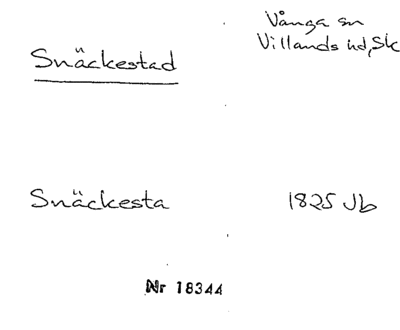 Vånga sn
Villands hd, Sk
Snäckestad
Snäckesta 1825 Jb
Nr 18344